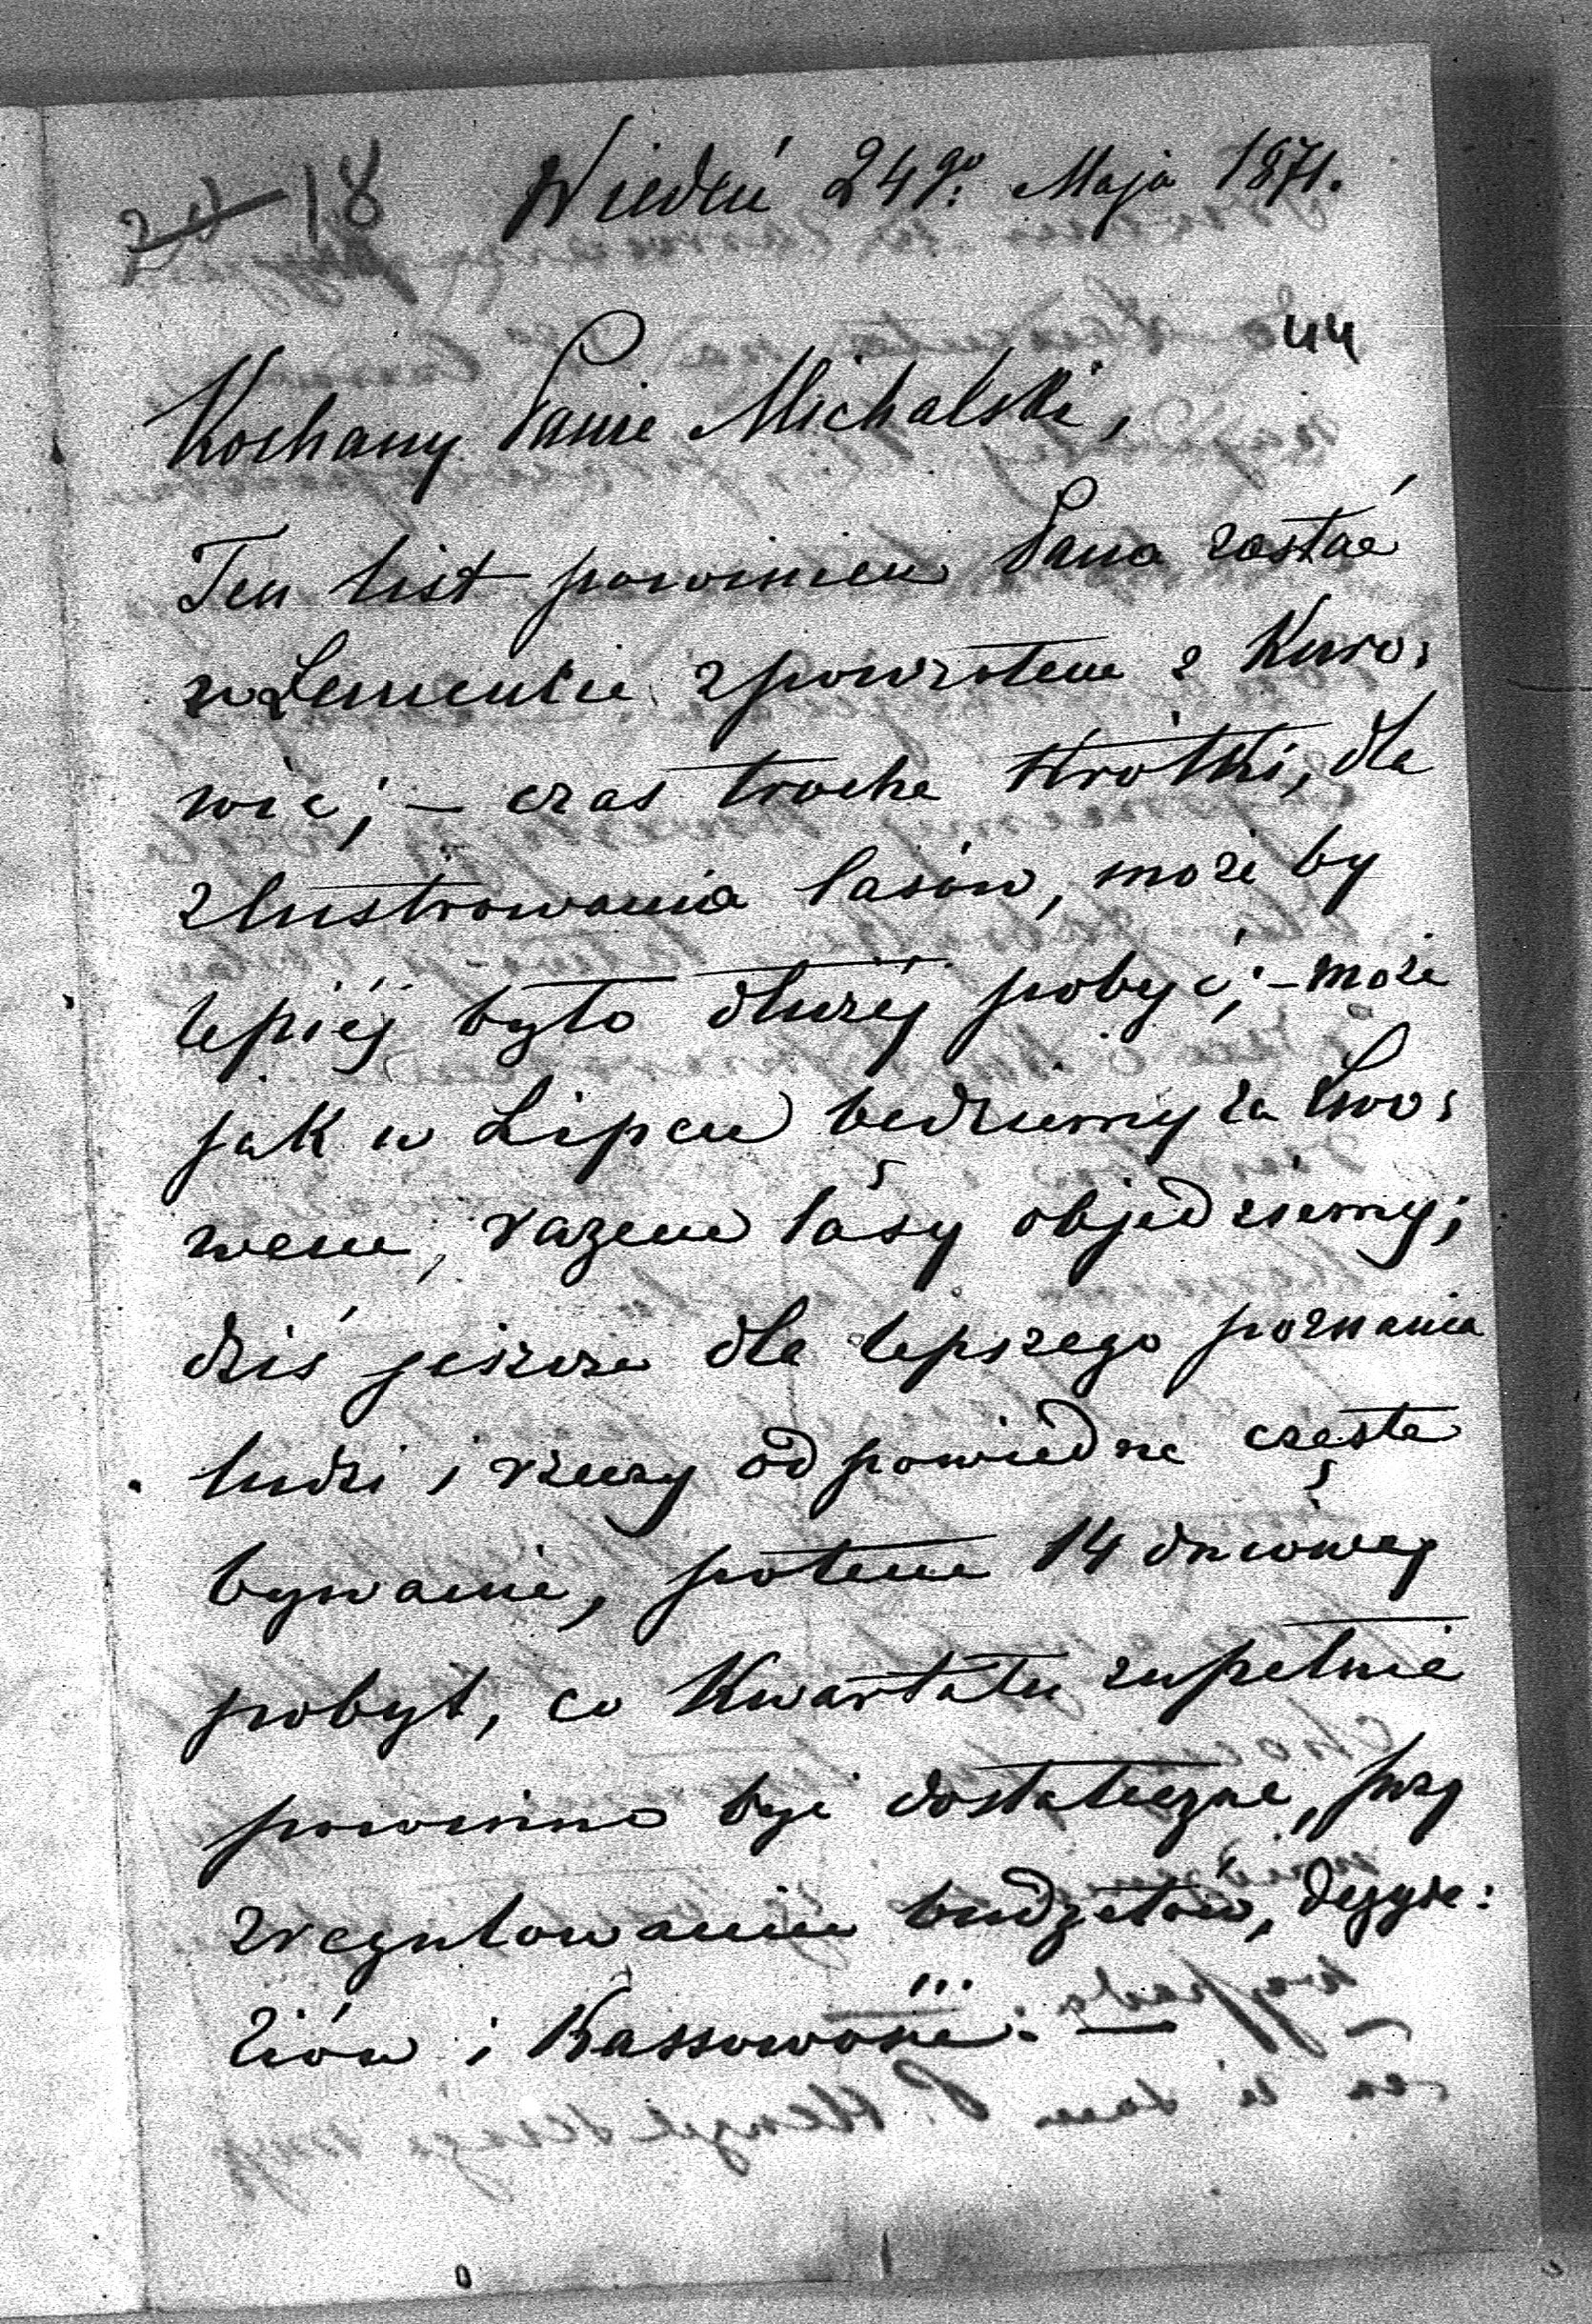 18 Wiedeń 24go. Maja 1871.
44
Kochany Panie Michalski,
Ten list powinien Pana zastać
w Lemencie z powrotem z Kuro:
wic; – czas troche Krótki, dla
zlustrowania lasów, może by
lepiéj było dłużéj pobyć; – może
jak w Lipcu bedziemy za Lwo:
wem, razem lasy objedziemy;
dziś jeszcze dla lepszego poznania
ludzi i rzeczy odpowiedne częste
bywanie, potem 14 dniowey
pobyt, co Kwartału zupełnie
powinno być dostateczne, przy
zregulowaniu budżetów,
i Kassowości. —